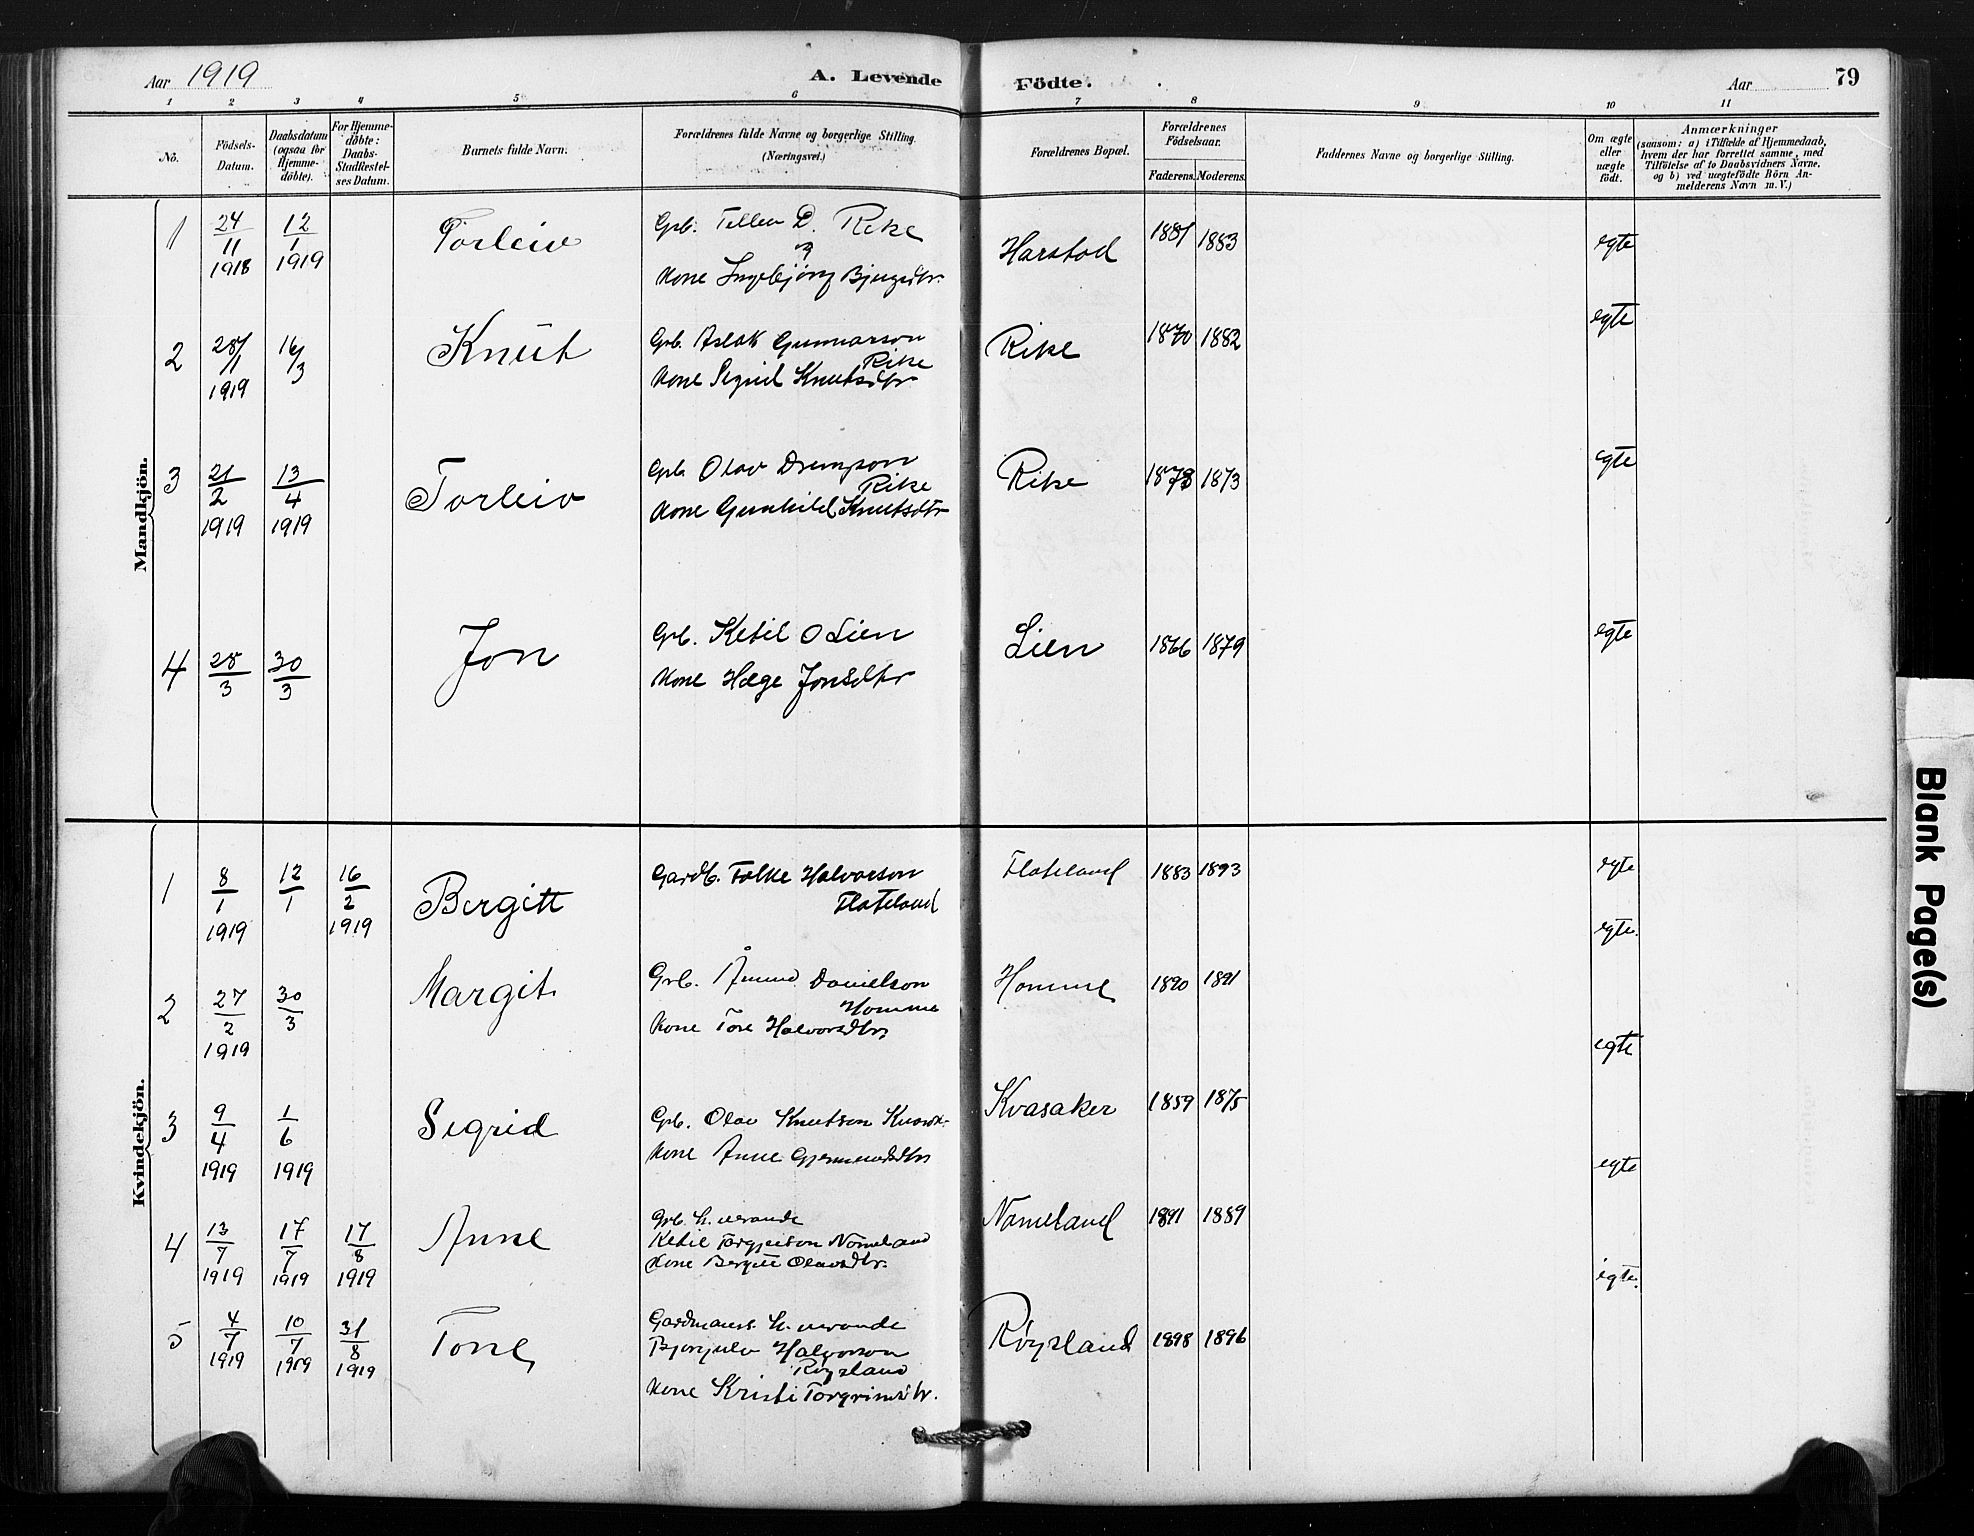 Aar 1919
A. Levende Födte.
Aar 79
1 2 3 4 5 6 7 8 9 10 11
No.
Födsels-Datum.
Daabsdatum (ogsaa for Hjemme-döbte).
For Hjemme-döbte: Daabs-Stadfestel-ses Datum.
Barnets fulde Navn.
Forældrenes fulde Navne og borgerlige Stilling. (Næringsvei.)
Forældrenes Bopæl.
Forældrenes Födselsaar.
Faderens. Moderens.
Faddernes Navne og borgerlige Stilling.
Om ægte eller uægte födt.
Anmærkninger
(saasom: a) i Tilfælde af Hjemmedaab, hvem der har forrettet samme, med Tilföielse af to Daabsvidners Navne, og b) ved uægtefödte Börn An-melderens Navn m. V.)
Mandkjön.
1 24/11 1918 12/1 1919 Torleiv Grb. Tellev D. Rike
Kone Ingebjörg Harstad 1881 1883 egte
2 28/1 1919 16/3 Knut Grb. Aslak Gunnarson Rike
Kone Sigrid Knutsdtr Rike 1870 1882 egte
3 21/2 1919 13/4 1919 Torleiv Grb. Olav Rike
Kone Gunhild Knutsdtr Rike 1873 1873 egte
4 28/3 30/3 Jon Grb. Ketil O Lien
Kone Hæge Jonsdtr Lien 1866 1879 egte
Kvindekjön.
1 8/1 1919 12/1 16/2 1919 Bergitt Gardb. Folke Halvorson
Flateland Flateland 1883 1893 egte
egte.
2 27/2 1919 30/3 Margit Grb. Åmund Danielson
Homme
Kone Tore Halvorsdtr Homme 1890 1891
egte
3 9/4 1919 1/6 1919 Sigrid Grb. Olav Knutson
Kone Anne Kvasaker 1859 1875
egte
4 13/7 1919 17/7 1919 17/8 1919 Anne Grb. h. verande
Ketil Torgjeirson Nomeland
Kone Bergit Olavsdtr. Nomeland 1891 1889
egte.
5 4/7 1919 10/7 1919 31/8 1919 Tone Gardmanns. h. verande
Bjørgulv Halvorson
Røysland
Kone Kristi Torgrimsdtr. Røysland 1898 1896
Blank Page(s)